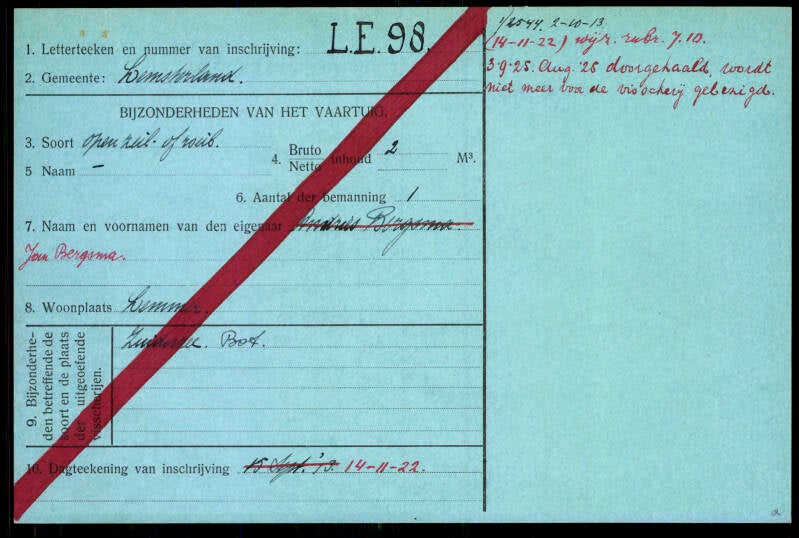 1. Letterteeken en nummer van inschrijving: L.E. 98.
2. Gemeente: Lemsterland.
BIJZONDERHEDEN VAN HET VAARTUIG.
3. Soort open zeil- of roeib.
4. Bruto Netto inhoud 2 M³.
5 Naam –
6. Aantal der bemanning 1
7. Naam en voornamen van den eigenaar Andries Bergsma.
Jan Bergsma.
8. Woonplaats Lemmer.
9. Bijzonderhe-
den betreffende de
soort en de plaats
der uitgeoefende
visscherijen.
Zuiderzee. Bot.
10. Dagteekening van inschrijving 15 Sept. '13. 14-11-22.
1/2544 2-10-13
(14-11-22) wijz. rubr. 7.10.
3.9.25. Aug. '25 doorgehaald, wordt
niet meer voor de visscherij gebezigd.